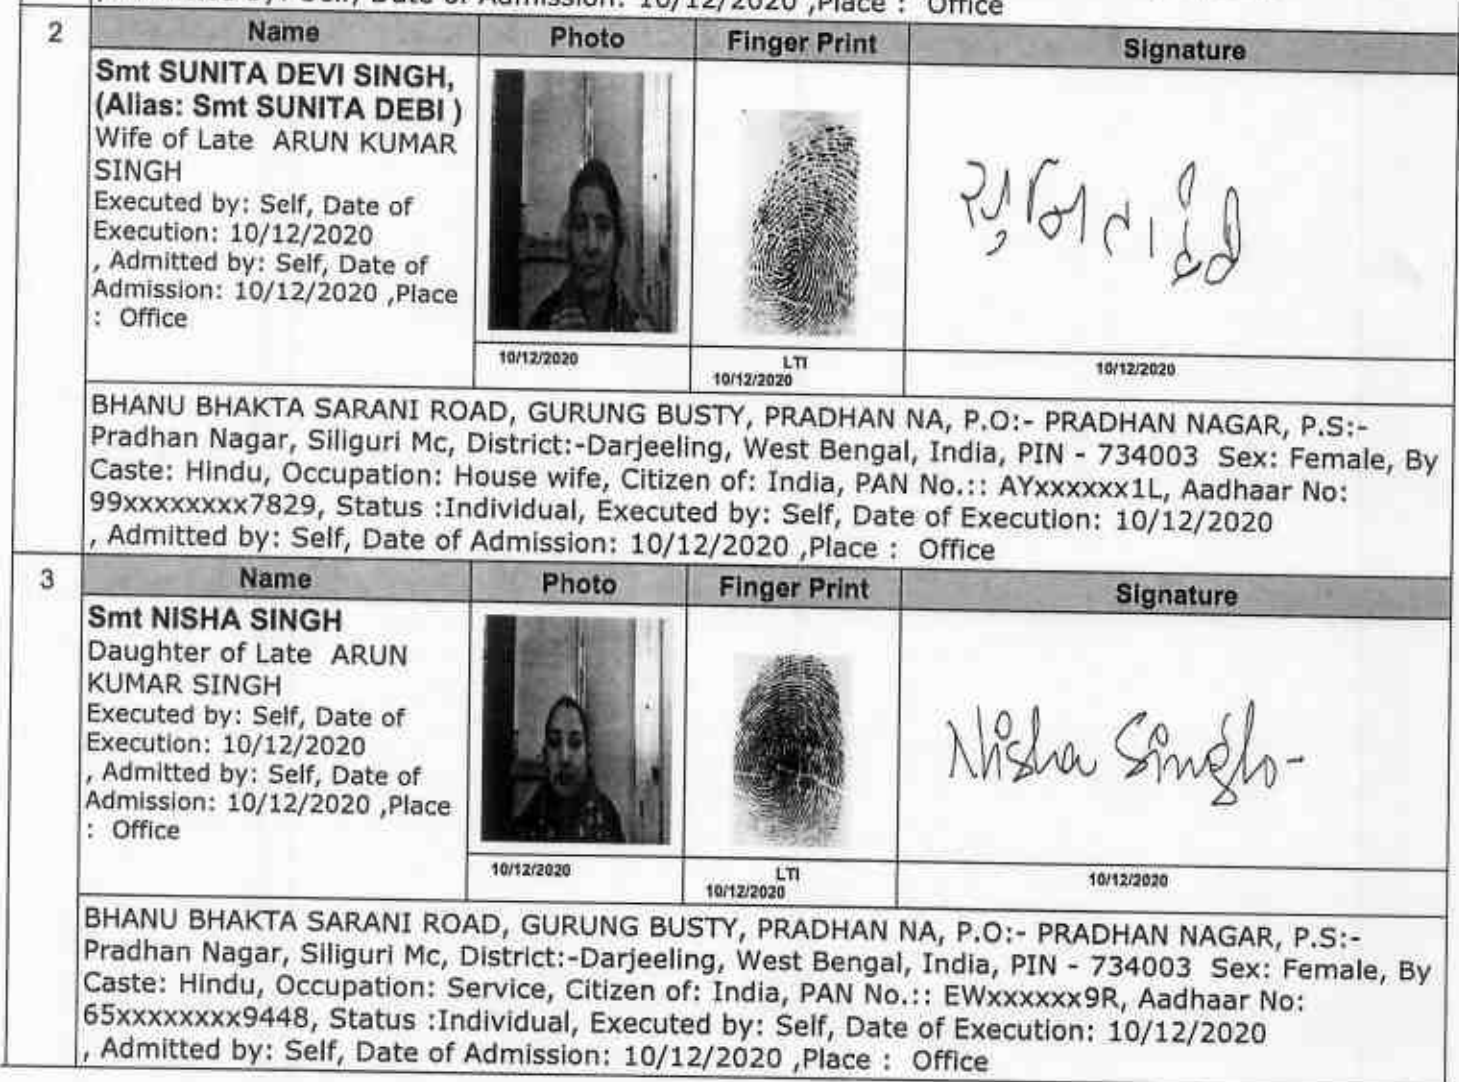 Admission: 10/12/2020 ,Place : Office
2 Name Photo Finger Print Signature
Smt SUNITA DEVI SINGH,
(Alias: Smt SUNITA DEBI )
Wife of Late ARUN KUMAR
SINGH
Executed by: Self, Date of
Execution: 10/12/2020
, Admitted by: Self, Date of
Admission: 10/12/2020 ,Place
: Office
सुनिता देवी
10/12/2020
LTI
10/12/2020
10/12/2020
BHANU BHAKTA SARANI ROAD, GURUNG BUSTY, PRADHAN NA, P.O:- PRADHAN NAGAR, P.S:-
Pradhan Nagar, Siliguri Mc, District:-Darjeeling, West Bengal, India, PIN - 734003 Sex: Female, By
Caste: Hindu, Occupation: House wife, Citizen of: India, PAN No.:: AYxxxxxx1L, Aadhaar No:
99xxxxxxxx7829, Status :Individual, Executed by: Self, Date of Execution: 10/12/2020
, Admitted by: Self, Date of Admission: 10/12/2020 ,Place : Office
3 Name Photo Finger Print Signature
Smt NISHA SINGH
Daughter of Late ARUN
KUMAR SINGH
Executed by: Self, Date of
Execution: 10/12/2020
, Admitted by: Self, Date of
Admission: 10/12/2020 ,Place
: Office
Nisha Singh
10/12/2020
LTI
10/12/2020
10/12/2020
BHANU BHAKTA SARANI ROAD, GURUNG BUSTY, PRADHAN NA, P.O:- PRADHAN NAGAR, P.S:-
Pradhan Nagar, Siliguri Mc, District:-Darjeeling, West Bengal, India, PIN - 734003 Sex: Female, By
Caste: Hindu, Occupation: Service, Citizen of: India, PAN No.:: EWxxxxxx9R, Aadhaar No:
65xxxxxxxx9448, Status :Individual, Executed by: Self, Date of Execution: 10/12/2020
, Admitted by: Self, Date of Admission: 10/12/2020 ,Place : Office